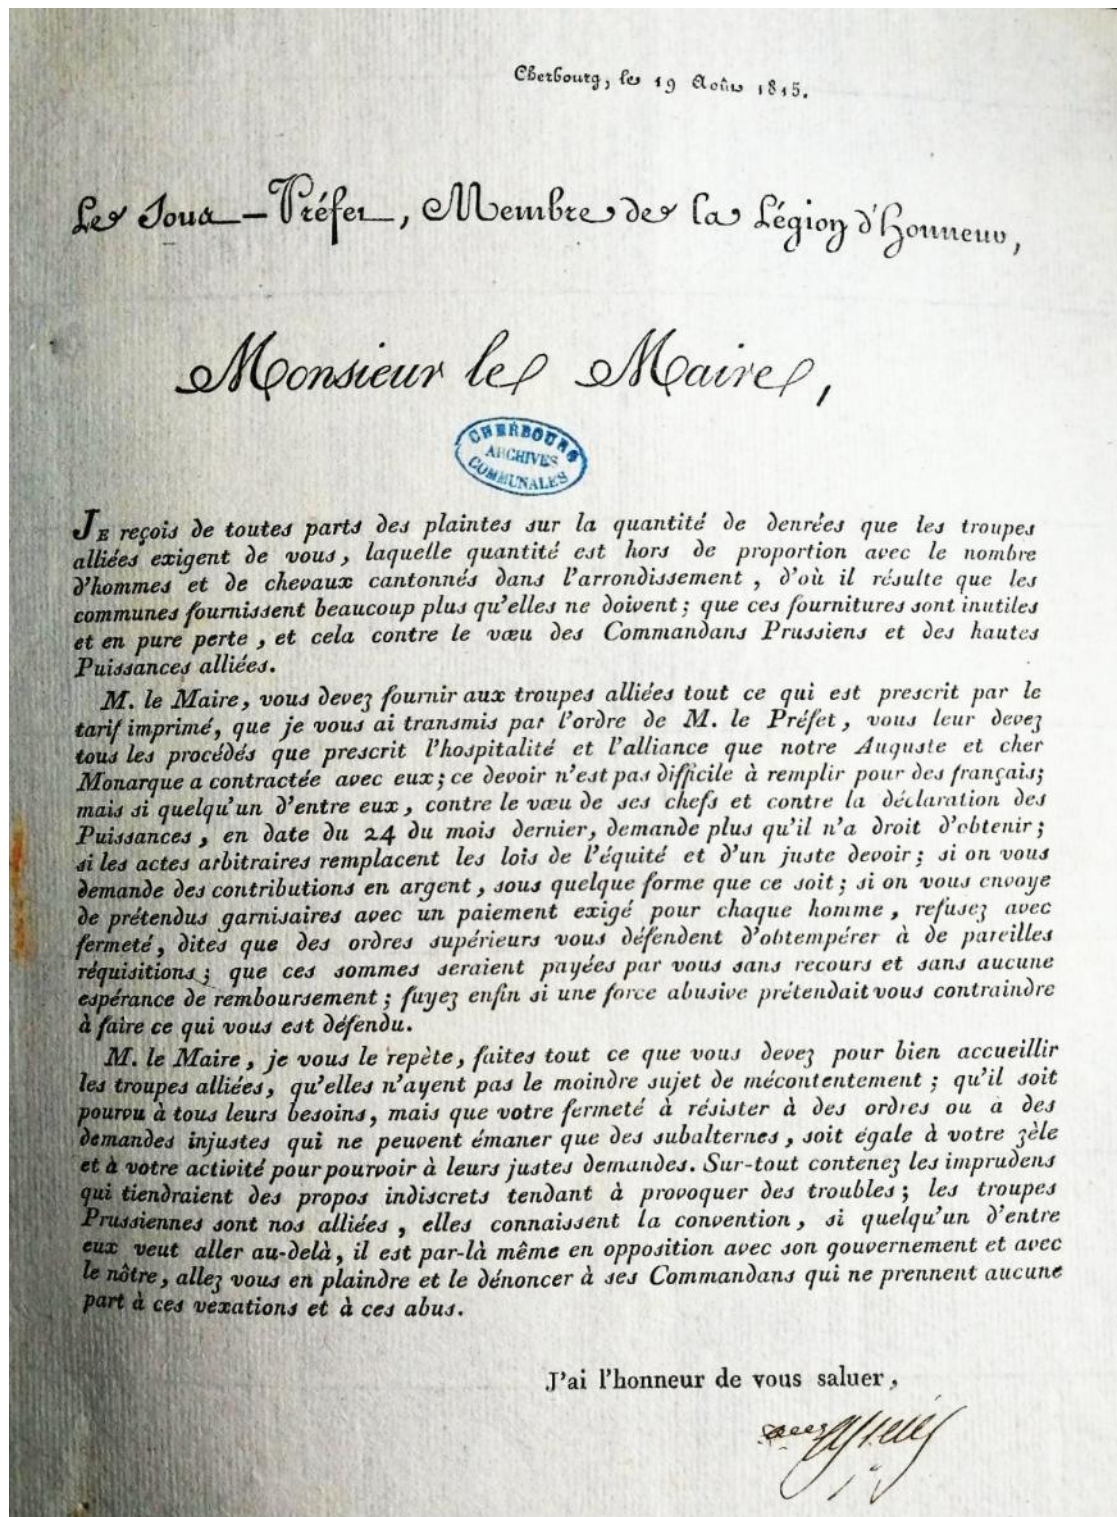 Cherbourg, le 19 Août 1815.
Le Sous-Préfet, Membre de la Légion d'Honneur,
Monsieur le Maire,
CHERBOURG
ARCHIVES
COMMUNALES
JE reçois de toutes parts des plaintes sur la quantité de denrées que les troupes
alliées exigent de vous, laquelle quantité est hors de proportion avec le nombre
d'hommes et de chevaux cantonnés dans l'arrondissement, d'où il résulte que les
communes fournissent beaucoup plus qu'elles ne doivent; que ces fournitures sont inutiles
et en pure perte, et cela contre le vœu des Commandans Prussiens et des hautes
Puissances alliées.
M. le Maire, vous devez fournir aux troupes alliées tout ce qui est prescrit par le
tarif imprimé, que je vous ai transmis par l'ordre de M. le Préfet, vous leur devez
tous les procédés que prescrit l'hospitalité et l'alliance que notre Auguste et cher
Monarque a contractée avec eux; ce devoir n'est pas difficile à remplir pour des français;
mais si quelqu'un d'entre eux, contre le vœu de ses chefs et contre la déclaration des
Puissances, en date du 24 du mois dernier, demande plus qu'il n'a droit d'obtenir;
si les actes arbitraires remplacent les lois de l'équité et d'un juste devoir; si on vous
demande des contributions en argent, sous quelque forme que ce soit; si on vous envoye
de prétendus garnisaires avec un paiement exigé pour chaque homme, refusez avec
fermeté, dites que des ordres supérieurs vous défendent d'obtempérer à de pareilles
réquisitions; que ces sommes seraient payées par vous sans recours et sans aucune
espérance de remboursement; fuyez enfin si une force abusive prétendait vous contraindre
à faire ce qui vous est défendu.
M. le Maire, je vous le repète, faites tout ce que vous devez pour bien accueillir
les troupes alliées, qu'elles n'ayent pas le moindre sujet de mécontentement; qu'il soit
pourvu à tous leurs besoins, mais que votre fermeté à résister à des ordres ou à des
demandes injustes qui ne peuvent émaner que des subalternes, soit égale à votre zèle
et à votre activité pour pourvoir à leurs justes demandes. Sur-tout contenez les imprudens
qui tiendraient des propos indiscrets tendant à provoquer des troubles; les troupes
Prussiennes sont nos alliées, elles connaissent la convention, si quelqu'un d'entre
eux veut aller au-delà, il est par-là même en opposition avec son gouvernement et avec
le nôtre, allez vous en plaindre et le dénoncer à ses Commandans qui ne prennent aucune
part à ces vexations et à ces abus.
J'ai l'honneur de vous saluer,